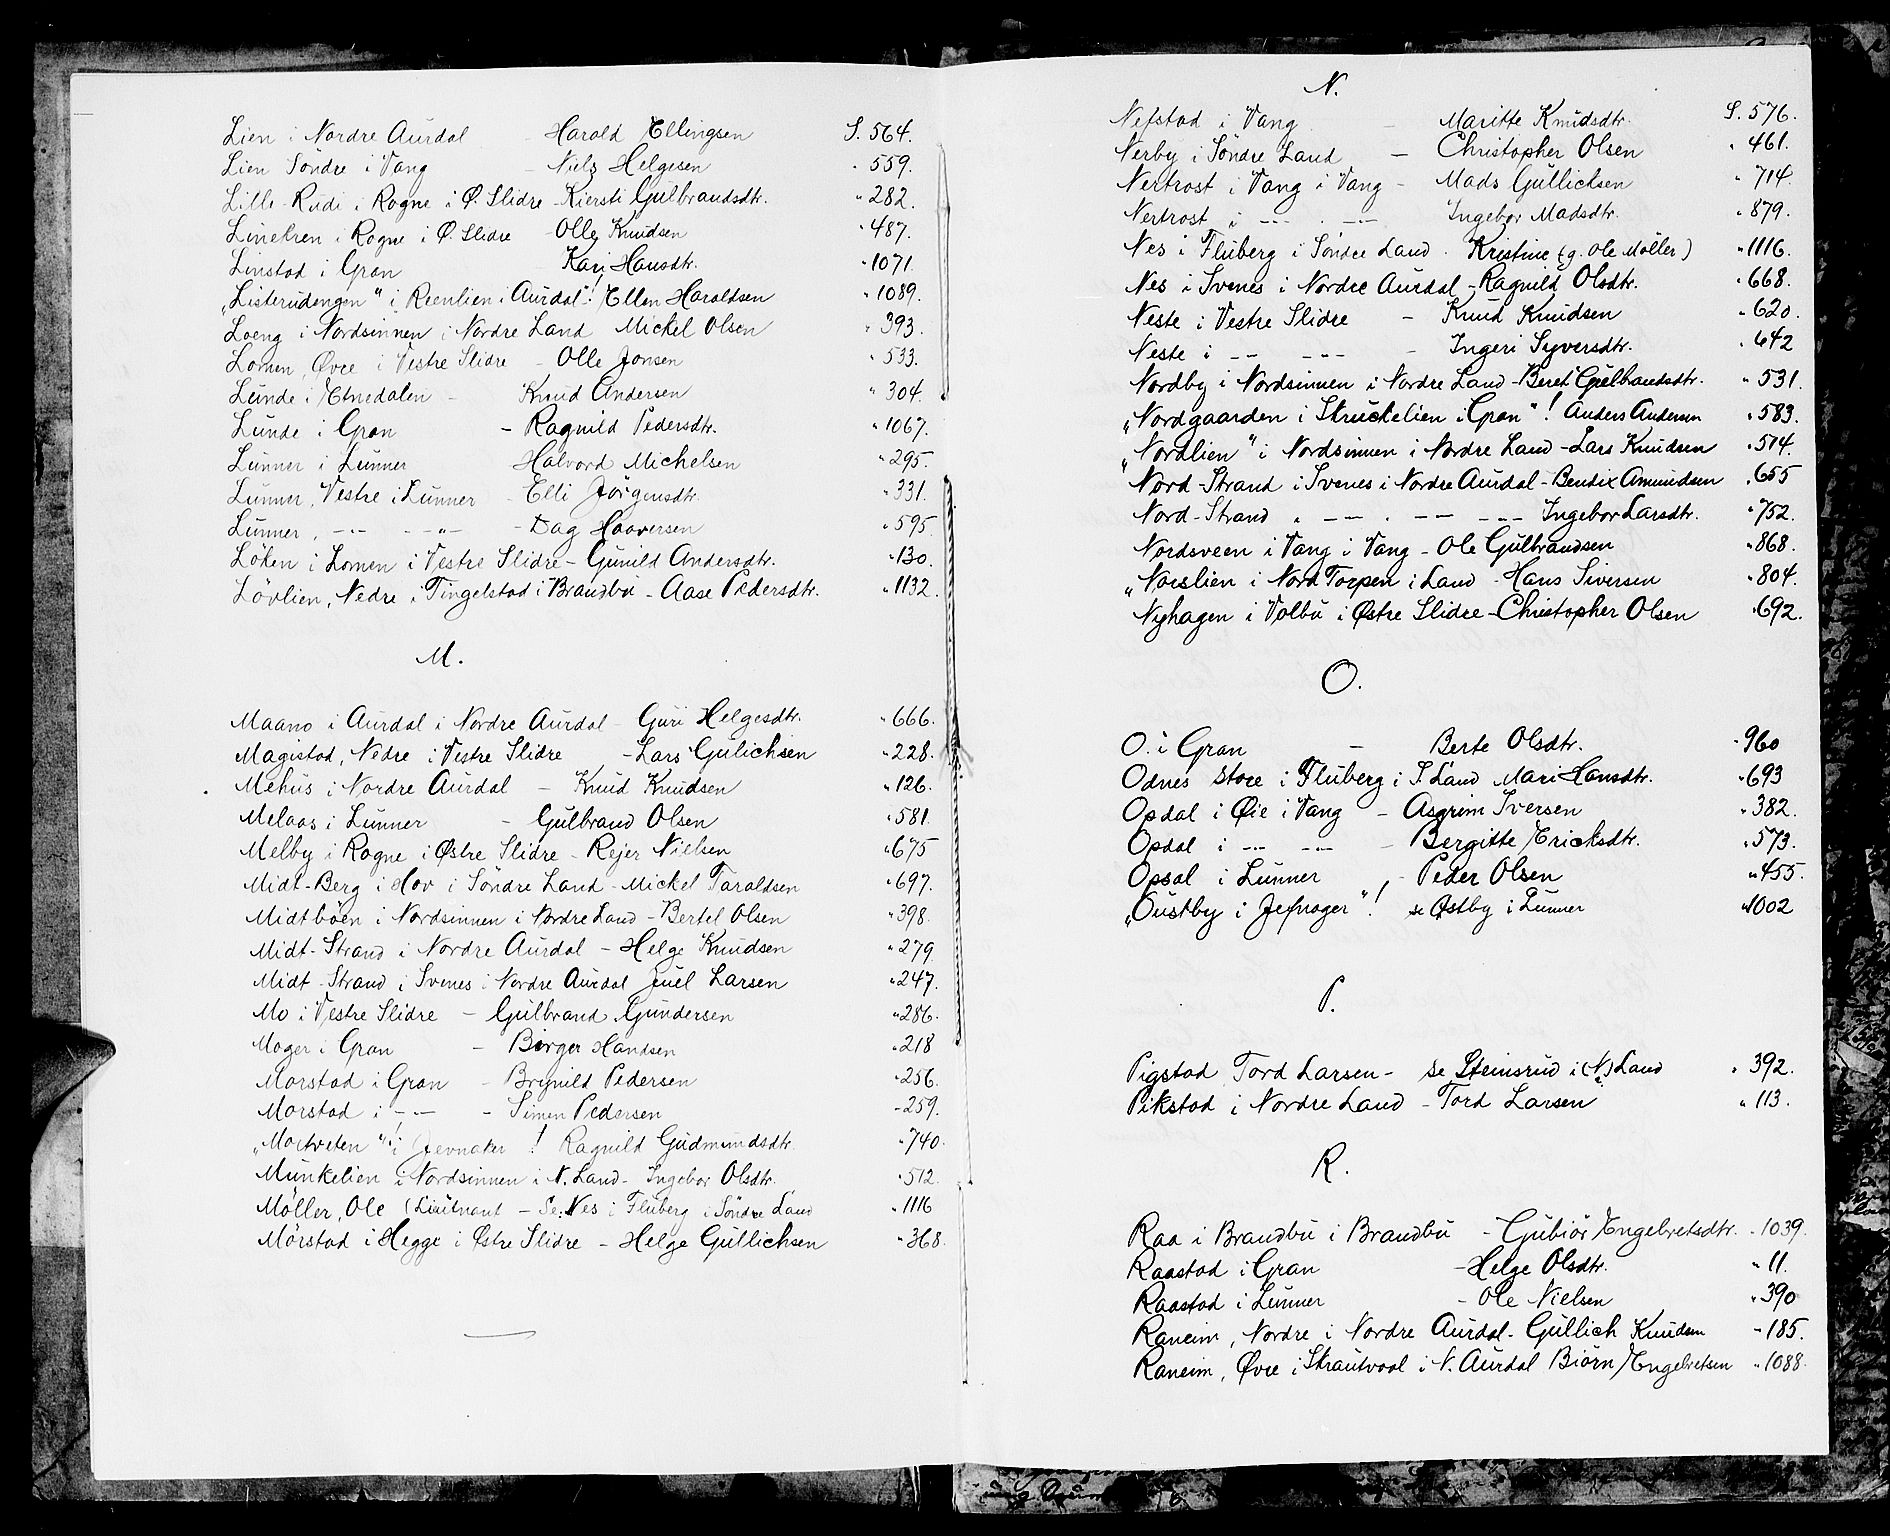 Lien i Nordre Aurdal - Harald Ellingsen S. 564.
Lien Söndre i Vang - Niels Helgesen " 559.
Lille-Rudi i Rogne i Ø. Slidre - Kiersti Gulbrandsdtr. " 282.
Linekren i Rogne i Ø. Slidre - Olle Knudsen " 487.
Linstad i Gran Kari Hansdtr. " 1071.
„Listerudengen" i Reenlien i Aurdal"! Ellen Haraldsen " 1089.
Loeng i Nordsinnen i Nordre Land Mickel Olsen " 393.
Lomen, Øvre i Vestre Slidre - Olle Jonsen " 533.
Lunde i Etnedalen - Knud Andersen " 304.
Lunde i Gran - Ragnild Pedersdtr. " 1067.
Lunner i Lunner Halvord Michelsen " 295.
Lunner, Vestre i Lunner - Elli Jörgensdtr. " 331.
Lunner, -"- -"- - Dag Haaversen " 595.
Löken i Lomen i Vestre Slidre - Gunild Andersdtr. " 130.
Lövlien, Nedre i Tingelstad i Brandbu - Aase Pedersdtr. " 1132.
M.
Maano i Aurdal i Nordre Aurdal - Guri Helgesdtr. " 666.
Magistad, Nedre i Vestre Slidre - Lars Gulichsen " 228.
Mehus i Nordre Aurdal - Knud Knudsen " 126.
Melaas i Lunner - Gulbrand Olsen " 581.
Melby i Rogne i Østre Slidre - Rejer Nielsen " 675
Midt-Berg i Hov i Söndre Land - Mickel Taraldsen " 697.
Midtböen i Nordsinnen i Nordre Land - Bertel Olsen " 398.
Midt-Strand i Nordre Aurdal - Helge Knudsen " 279
Midt-Strand i Svenes i Nordre Aurdal Juel Larsen " 247.
Mo i Vestre Slidre - Gulbrand Gundersen " 286.
Moger i Gran - Börger Handsen " 218
Morstad i Gran - Brynild Pedersen " 256.
Morstad i -"- - Simen Pedersen - 259.
„Mortveten" i Jevnaker! Ragnild Gudmundsdtr. " 740.
Munkelien i Nordsinnen i N. Land - Ingebor Olsdtr. " 512.
Möller, Ole (Lieutnant - Se: Nes i Fluberg i Söndre Land " 1116
Mörstad i Hegge i Østre Slidre - Helge Gullichsen " 368.
N.
Nefstad i Vang - Maritte Knudsdtr. S. 576.
Nerby i Söndre Land - Christopher Olsen " 461.
Nertrost i Vang i Vang - Mads Gullichsen " 714.
Nertrost i -"- . -"- Ingebor Madsdtr. " 879.
Nes i Fluberg i Söndre Land . Kristine (g. Ole Möller) " 1116.
Nes i Svenes i Nordre Aurdal - Ragnild Olsdtr. " 668.
Neste i Vestre Slidre - Knud Knudsen " 620.
Neste i -"- -"- - Ingeri Syversdtr. " 642
Nordby i Nordsinnen i Nordre Land - Beret Gulbrandsdtr. " 531.
„Nordgaarden i Struckelien i Gran"! Anders Andersen " 583.
„Nordlien" i Nordsinnen i Nordre Land - Lars Knudsen " 514.
Nord-Strand i Svenes i Nordre Aurdal - Bendix Amundsen " 655
Nord-Strand " -"- . -"- -"- Ingebor Larsdtr. " 752.
Nordsveen i Vang i Vang - Ole Gulbrandsen " 868.
„Norslien i Nord Torpen i Land - Hans Siversen " 804.
Nyhagen i Volbu i Østre Slidre - Christopher Olsen " 692.
O.
O. i Gran - Berte Olsdtr. " 960
Odnes store i Fluberg i S. Land Mari Hansdtr. " 693
Opdal i Øie i Vang - Asgrim Iversen " 382.
Opdal i -"- -"- - Bergitte Ericksdtr. " 573.
Opsal i Lunner - Peder Olsen " 455.
„Oustby i Jefnager"! se Østby i Lunner " 1002
P.
Pigstad Tord Larsen - se Steinsrud i (N.) Land " 392.
Pikstad i Nordre Land - Tord Larsen " 113.
R.
Raa i Brandbu i Brandbu - Gubiör Engelretsdtr. " 1039.
Raastad i Gran - Helge Olsdtr. " 11.
Raastad i Lunner - Ole Nielsen " 390
Raneim, Nordre i Nordre Aurdal - Gullich Knudsen - 185.
Raneim, Øvre i Strautvaal i N. Aurdal Biörn Engelretsen " 1088.